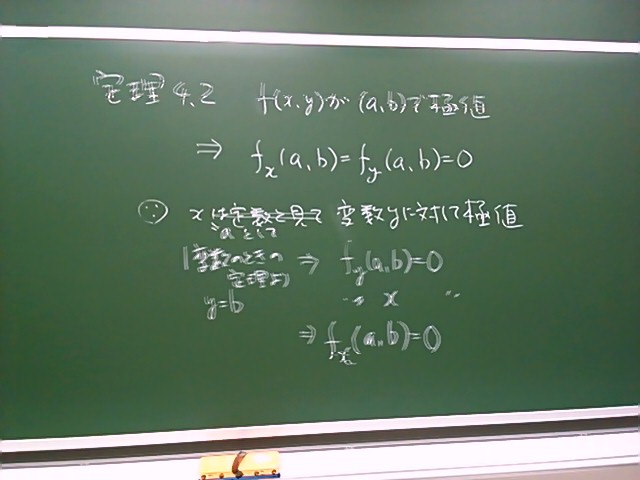 定理4.2 f(x,y)が(a,b)で極値
⇒ f_x(a,b)=f_y(a,b)=0
∵ xは定数と見て 変数yに対して極値
aとして
1変数のときの ⇒ f_y(a,b)=0
定理より
y=b 〃 x 〃
⇒ f_x(a,b)=0